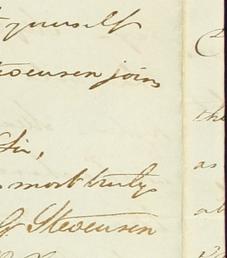 yourself
Stevenson joins
Sir,
most truly
Stevenson
th
as